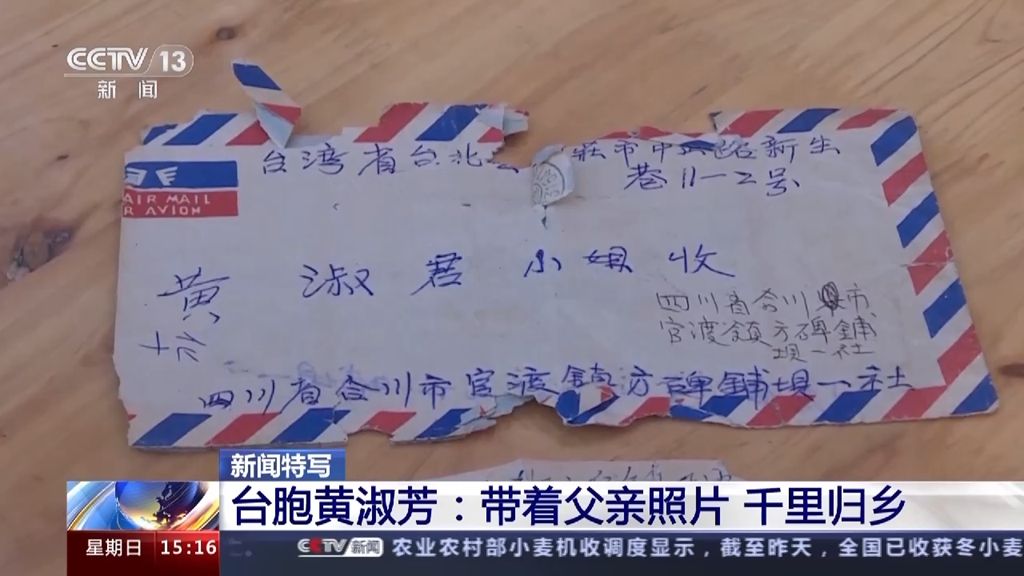 CCTV 13
新闻
台湾省台北 庄市中 路新生
巷11-2号
AIR MAIL
R AVION
黄 淑君小姐收
四川省合川市
官渡镇方碑铺
坝一社
四川省合川市官渡镇方碑铺坝一社
新闻特写
台胞黄淑芳：带着父亲照片 千里归乡
星期日 15:16 CCTV 新闻 农业农村部小麦机收调度显示，截至昨天，全国已收获冬小麦